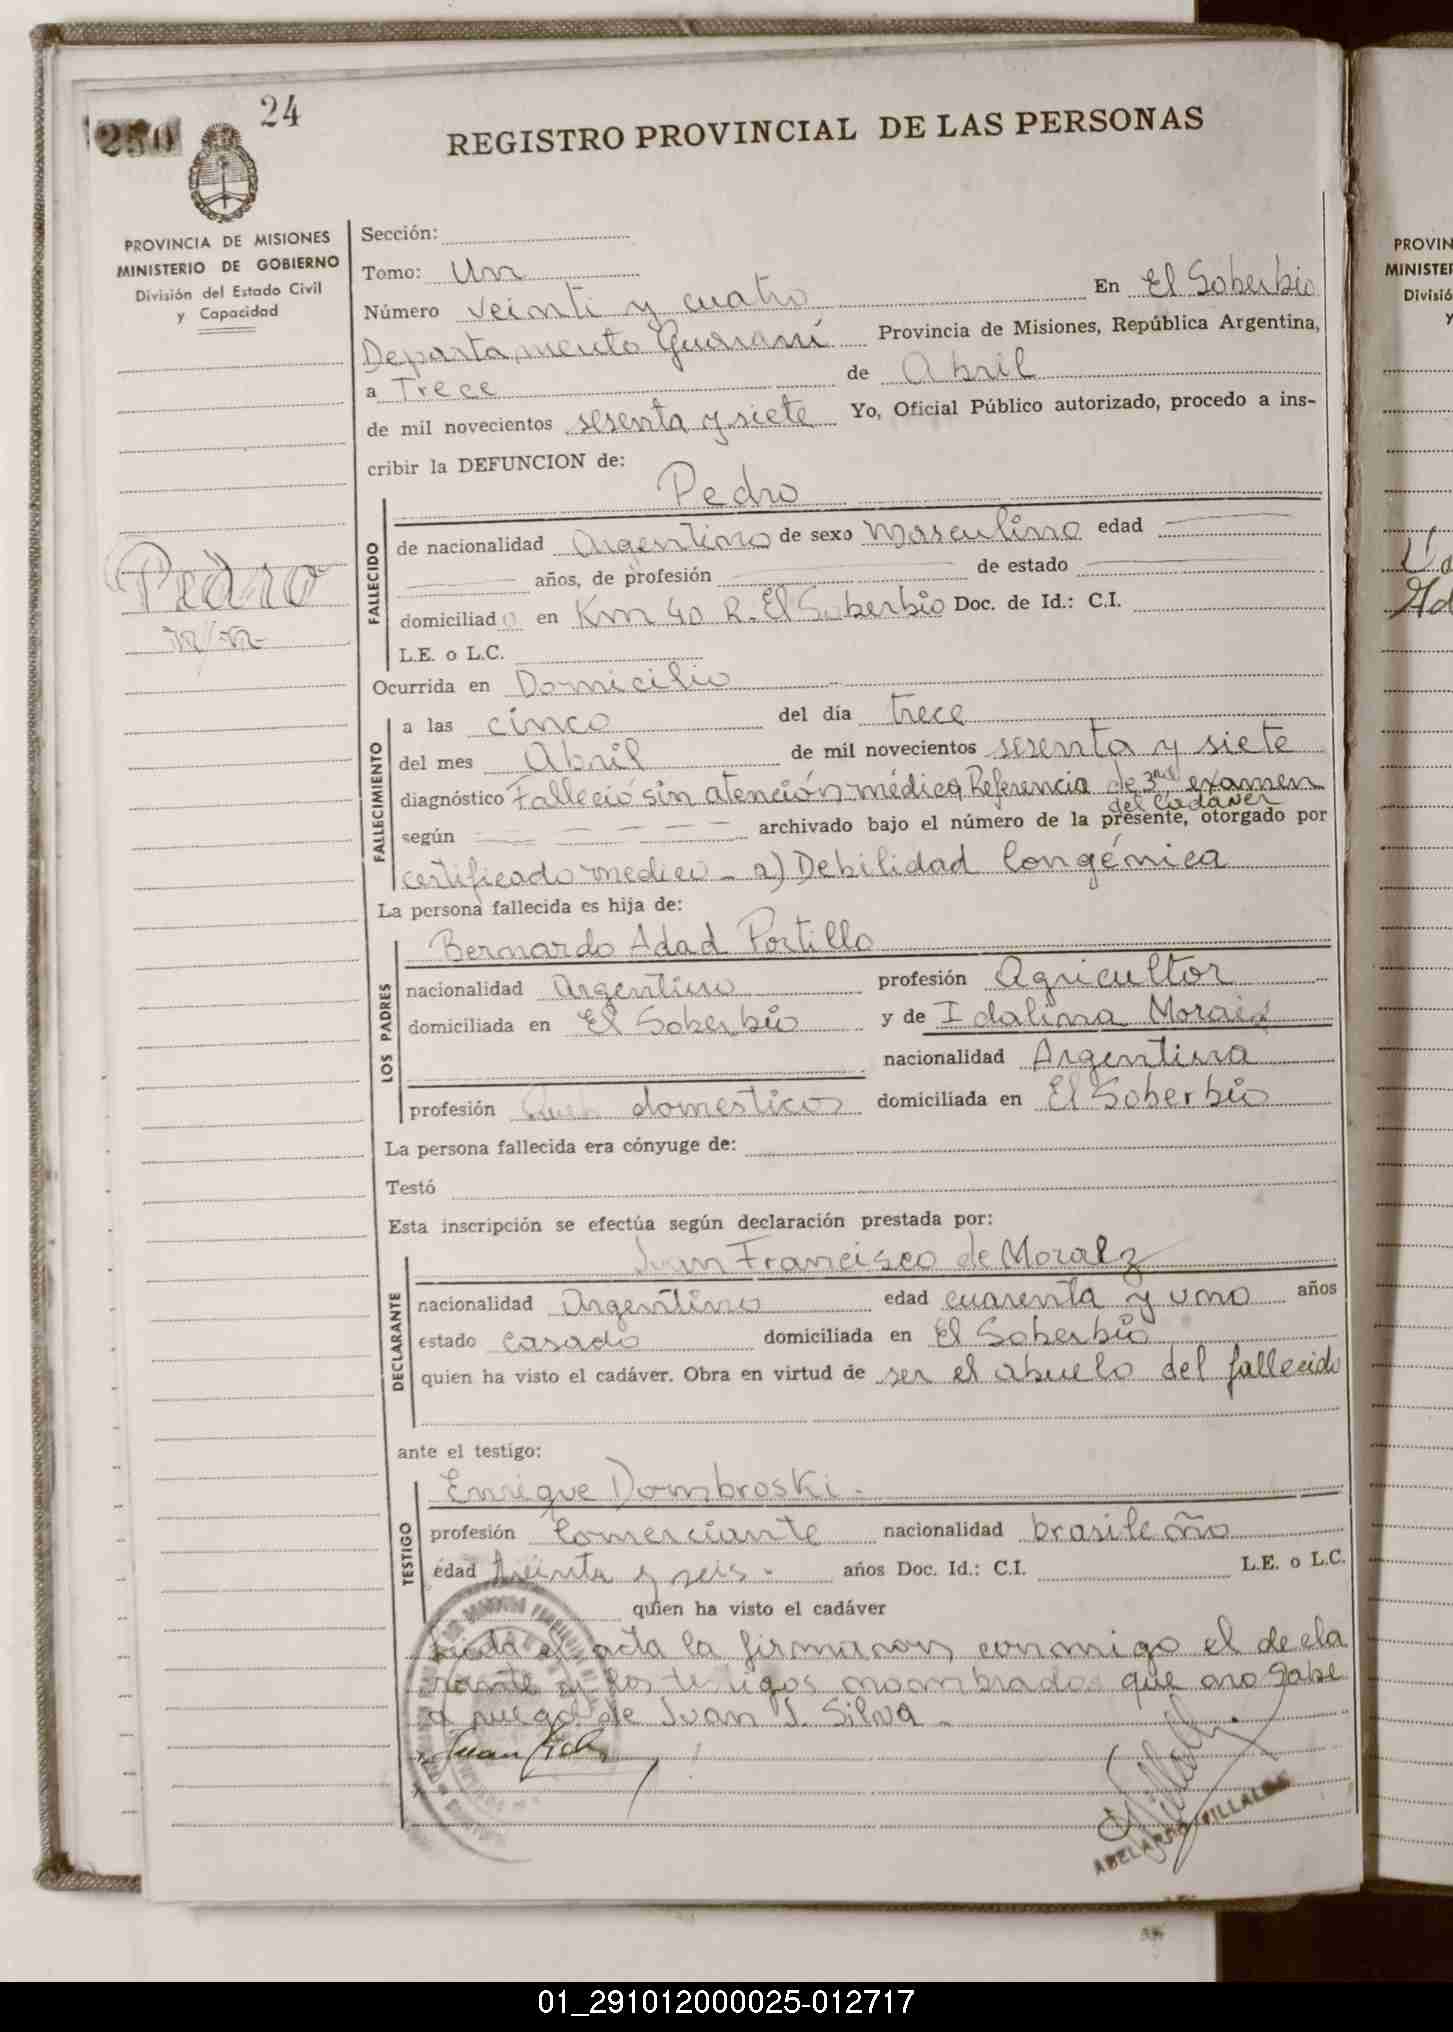 250
24
REGISTRO PROVINCIAL DE LAS PERSONAS
PROVINCIA DE MISIONES
MINISTERIO DE GOBIERNO
División del Estado Civil
y Capacidad
Pedro
n/n
Sección:
Tomo: Un
Número veinti y cuatro En El Soberbio
Departamento Guaraní Provincia de Misiones, República Argentina,
a Trece de Abril
de mil novecientos sesenta y siete Yo, Oficial Público autorizado, procedo a ins-
cribir la DEFUNCION de:
Pedro
FALLECIDO
de nacionalidad Argentino de sexo Masculino edad
años, de profesión de estado
domiciliado en Km 40 R. El Soberbio Doc. de Id.: C.I.
L.E. o L.C.
Ocurrida en Domicilio
FALLECIMIENTO
a las cinco del día trece
del mes Abril de mil novecientos sesenta y siete
diagnóstico Falleció sin atención médica Referencia de examen
del Cadáver
según archivado bajo el número de la presente, otorgado por
certificado medico - a) Debilidad Congénica
La persona fallecida es hija de:
LOS PADRES
Bernardo Adad Portillo
nacionalidad Argentino profesión Agricultor
domiciliada en El Soberbio y de Idalina Morais
nacionalidad Argentina
profesión Queh domesticos domiciliada en El Soberbio
La persona fallecida era cónyuge de:
Testó
Esta inscripción se efectúa según declaración prestada por:
DECLARANTE
Juan Francisco de Moraez
nacionalidad Argentino edad cuarenta y uno años
estado casado domiciliada en El Soberbio
quien ha visto el cadáver. Obra en virtud de ser el abuelo del fallecido
ante el testigo:
TESTIGO
Enrique Dombroski.
profesión Comerciante nacionalidad brasileño
edad treinta y seis. años Doc. Id.: C.I. L.E. o L.C.
quien ha visto el cadáver
el acta la firmaron conmigo el decla
rante y los testigos nombrados que no sabe
a ruego de Juan J. Silva -
Juan
ABELARDO VILLALBA
PROVIN
MINISTER
Divisió
y
01_291012000025-012717